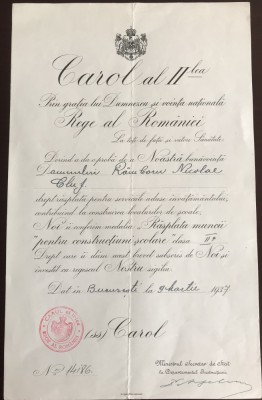 Carol al II-lea
Prin grația lui Dumnezeu și voința națională
Rege al României
La toți de față și viitori Sănătate.
Dorind a da o probă de a Noastră bunăvoință
Domnului Nicolae
Cluj
drept răsplată pentru serviciile aduse învățământului,
contribuind la construirea localurilor de școale,
Noi îi conferim medalia: "Răsplata muncii
"pentru construcțiuni școlare" clasa II-a
Drept care îi dăm acest brevet subscris de Noi și
învestit cu sigiliul Nostru regesc.
Dat în București la 9 1937
(ss) Carol
Ministrul Secretar de Stat
la Departamentul